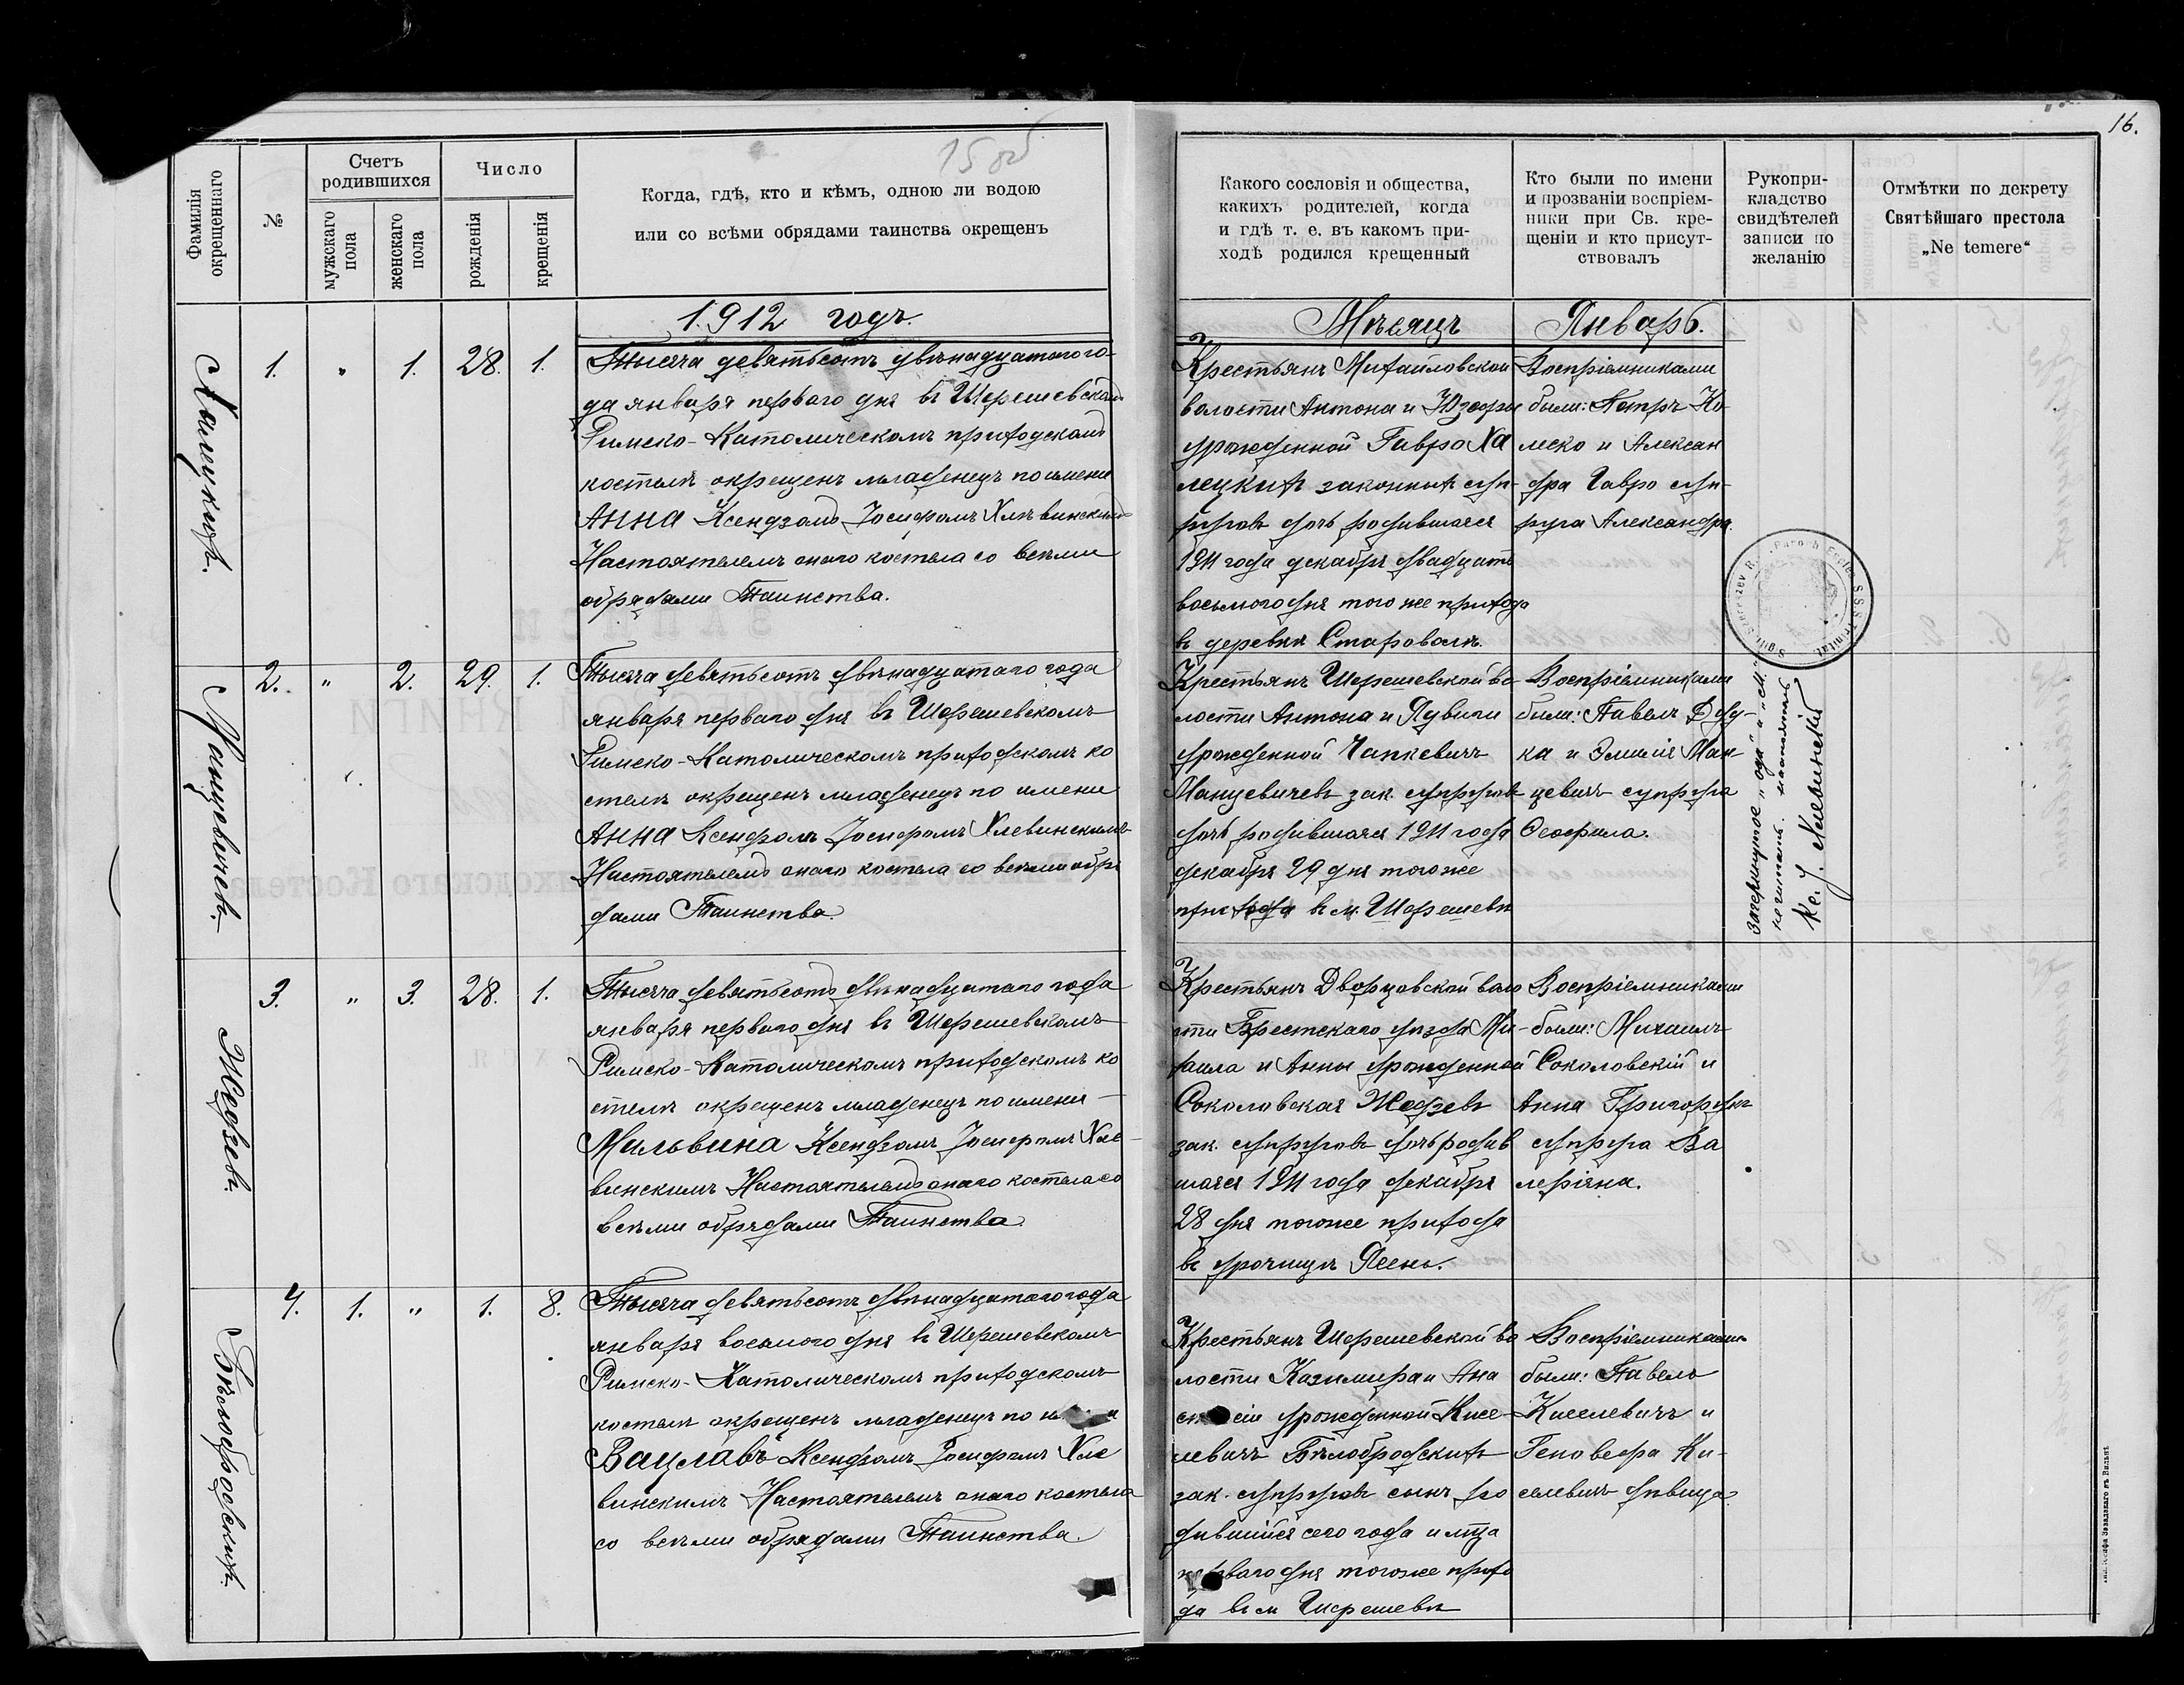 16.
15 об
Фамилія окрещеннаго
№
Счетъ родившихся
мужскаго пола
женскаго пола
Число
рожденія
крещенія
Когда, гдѣ, кто и кѣмъ, одною ли водою
или со всѣми обрядами таинства окрещенъ
Какого сословія и общества,
какихъ родителей, когда
и гдѣ т. е. въ какомъ при-
ходѣ родился крещенный
Кто были по имени
и прозваніи воспріем-
ники при Св. кре-
щеніи и кто присут-
ствовалъ
Рукопри-
кладство
свидѣтелей
записи по
желанію
Отмѣтки по декрету
Святѣйшаго престола
„Ne temere“
1912 годъ.
Мѣсяцъ Январь.
1. " 1. 28. 1.
Тысяча девятьсотъ двѣнадцатого го-
да января перваго дня въ Шерешевскомъ
Римско-Католическомъ приходскомъ
костелѣ окрещенъ младенецъ по имени
Анна Ксендзомъ Іосифомъ Хлѣвинскимъ
Настоятелемъ онаго костела со всѣми
обрядами Таинства.
Крестьянъ Михайловской
волости Антона и Юзефы
урожденной Гавро Ха
лецкихъ законныхъ суп-
руговъ дочь родившаяся
1911 года декабря двадцать
восьмого дня того же прихода
въ деревни Староволѣ.
Воспріемниками
были: Петръ Ко-
леско и Алексан
дра Гавро суп-
руга Александра.
Манцевичевъ.
2. " 2. 29. 1.
Тысяча девятьсотъ двѣнадцатаго года
января перваго дня въ Шерешевскомъ
Римско-Католическомъ приходскомъ ко
стелѣ окрещенъ младенецъ по имени
Анна Ксендзомъ Іосифомъ Хлевинскимъ
Настоятелемъ онаго костела со всѣми обря
дами Таинства.
Крестьянъ Шерешевской во
лости Антона и Ядвиги
урожденной Чапкевичъ
Манцевичевъ зак. супруговъ
дочь родившаяся 1911 года
декабря 29 дня тогоже
прихода въ м. Шерешевѣ
Воспріемниками
были: Павелъ Дуд-
ка и Эмилія Ман-
цевичъ супруга
Ѳеофила.
Кс. І. Хлевинскій
Жедзевъ
3. " 3. 28. 1.
Тысяча девятьсотъ двѣнадцатаго года
января перваго дня въ Шерешевскомъ
Римско-Католическомъ приходскомъ ко
стелѣ окрещенъ младенецъ по имени
Мальвина Ксендзомъ Іосифомъ Хле-
винскимъ Настоятелемъ онаго костела со
всѣми обрядами Таинства
Крестьянъ Дворцовской воло
сти Брестскаго уѣзда Ми-
хаила и Анны урожденной
Соколовская Жедзевъ
зак. супруговъ дочь родив
шаяся 1911 года декабря
28 дня тогоже прихода
въ урочищѣ Ясень.
Воспріемниками
были: Михаилъ
Соколовскій и
Анна
супруга Ва
леріяна.
Бѣлобродскихъ.
4. 1. " 1. 8.
Тысяча девятьсотъ двѣнадцатаго года
января восьмого дня въ Шерешевскомъ
Римско-Католическомъ приходскомъ
костелѣ окрещенъ младенецъ по
Вацлавъ Ксендзомъ Іосифомъ Хле
винскимъ Настоятелемъ онаго костела
со всѣми обрядами Таинства.
Крестьянъ Шерешевской во
лости Казимира и Ана
урожденной Кисе-
левичъ Бѣлобродскихъ
зак. супруговъ сынъ ро
дившійся сего года и мца
перваго дня тогоже прихо
да въ м Шерешевѣ
Воспріемниками
были: Павелъ
Киселевичъ и
Геновефа Ки-
селевичъ дѣвица.